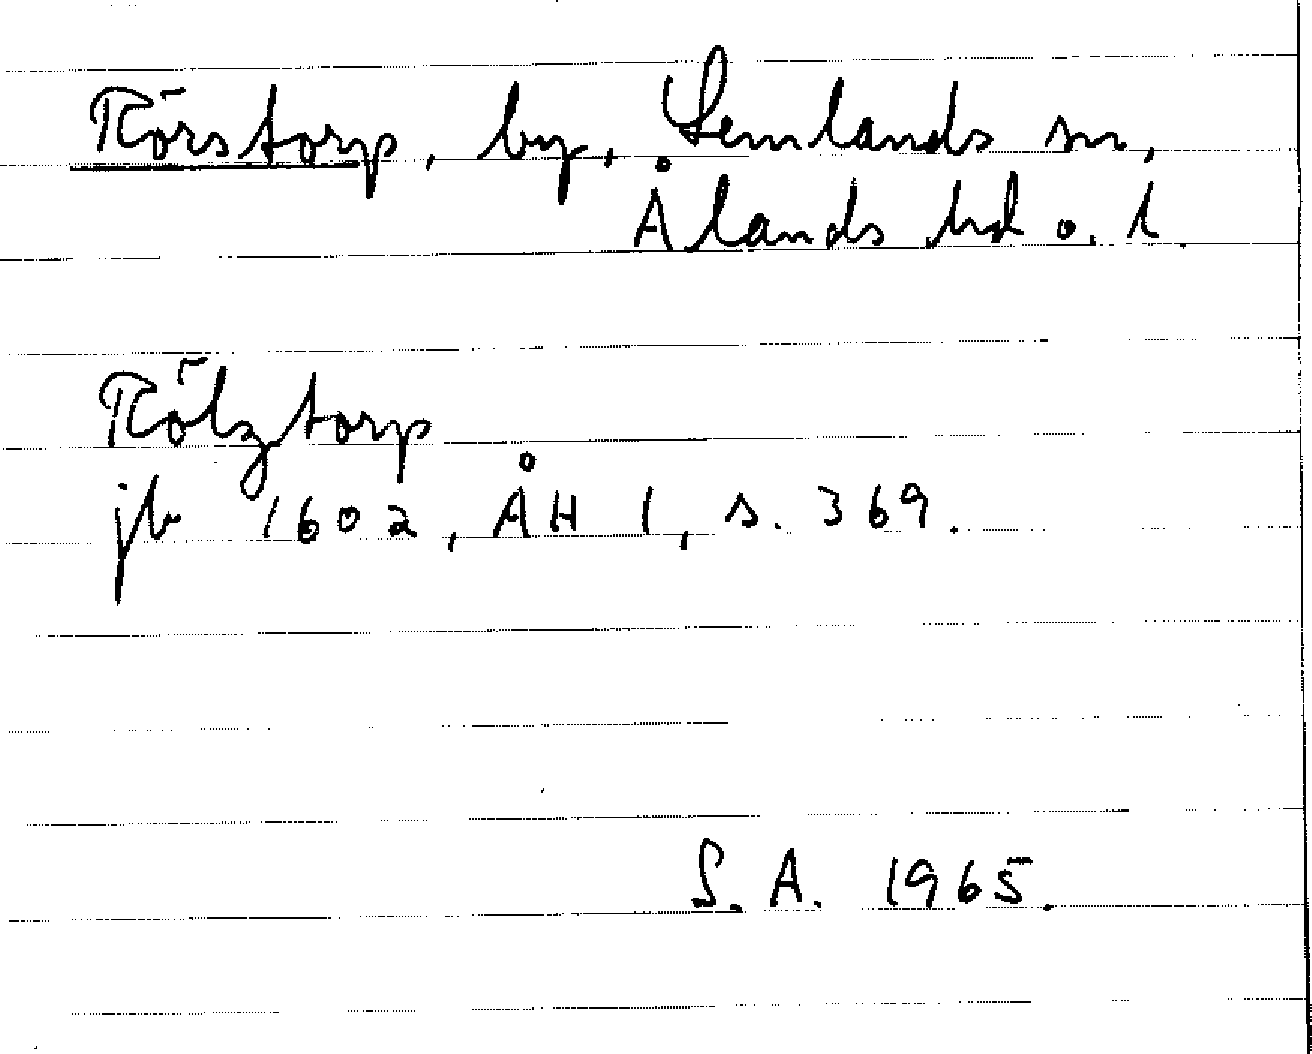 Rörstorp, by, Lemlands sn,
Ålands hd o. l.
Rölztorp
jb 1602, ÅH 1, s. 369.
S. A. 1965.